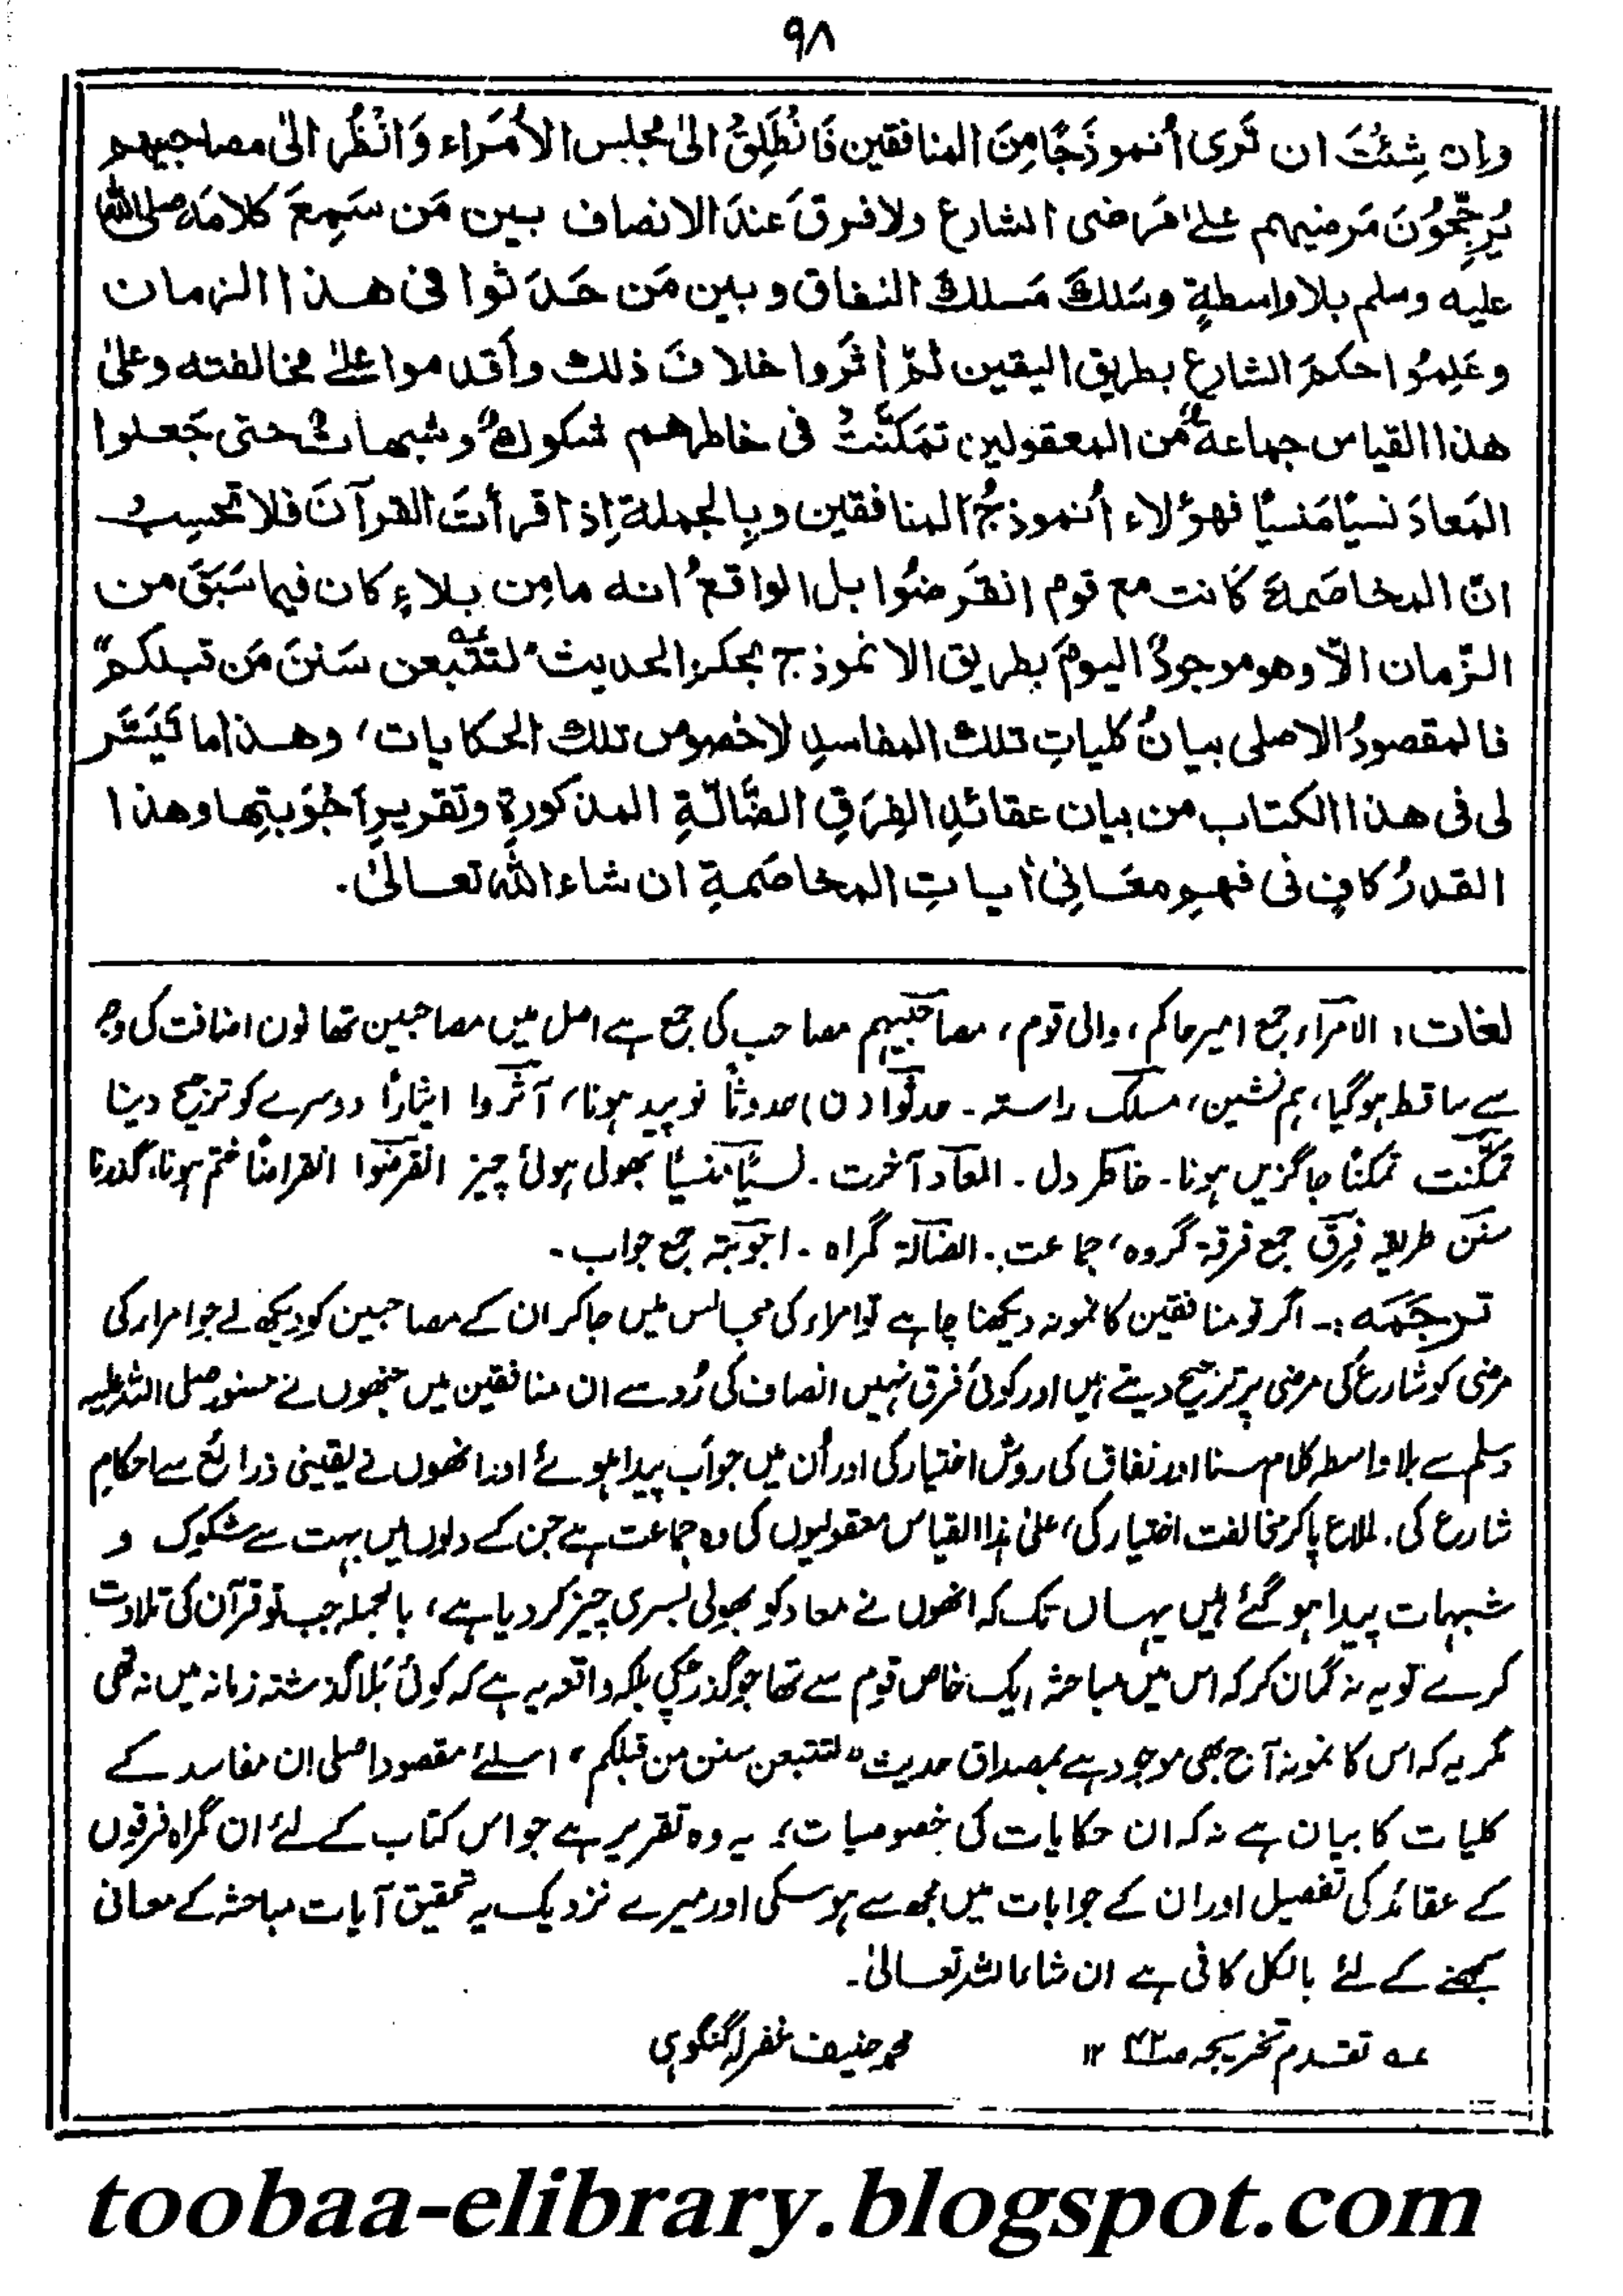 ۹۸
وإن شِئتَ ان تَرى أُنموذَجًا مِنَ المنافقين فَانْطَلِقْ الىٰ مجلس الأمَراء وَانْظُر الىٰ مصاحبيهم
يُرجِّحُونَ مَرضيهم علىٰ مَرَاضى الشارع ولا فرقَ عندَ الانصاف بين مَن سَمِعَ كلامَه صلى الله
عليه وسلم بلا واسطةٍ وسَلكَ مَسلكَ النفاق وبين مَن حَدَثوا فى هذا الزمان
وعَلِمُوا حكمَ الشارع بطريق اليقين ثمّ أثروا خلافَ ذلك وأقدموا علىٰ مخالفته وعلىٰ
هذا القياس جماعةٌ من المعقولين تمكّنتْ فى خاطرهم شكوكٌ وشبهاتٌ حتى جَعلوا
المَعادَ نسيًا مَنسيًا فهؤلاء أُنموذجُ المنافقين وبالجملة إذا قرأتَ القرآنَ فلا تحسب
انّ المخاصَمةَ كانت مع قوم انقَرضُوا بل الواقعُ انه مامِن بلاءٍ كان فيما سَبَقَ من
الزّمان الّا وهو موجودٌ اليومَ بطريق الانموذج بحكم الحديث "لتتّبعن عہ سَننَ مَن قبلكم"
فالمقصودُ الاصلى بيانُ كلياتِ تلك المفاسدِ لا خصوصِ تلك الحكايات، وهذا ما تَيَسَّر
لى فى هذا الكتاب من بيان عقائدِ الفِرَقِ الضَّالّةِ المذكورةِ وتقريرِ أجْوبَتِها وهذا
القدرُ كافٍ فى فهمِ معَانِىْ أياتِ المخاصَمةِ ان شاء الله تعالىٰ.
لغات: الامَراء جمع امیر حاکم، والی قوم، مصاحبیہم مصاحب کی جمع ہے اصل میں مصاحبین تھا نون اضافت کی وجہ
سے ساقط ہوگیا، ہم نشین، مسلک راستہ۔ حدثوا (ن) حدوثاً نوپید ہونا، آثروا ایثاراً دوسرے کو ترجیح دینا
تمکنت تمکناً جاگزیں ہونا۔ خاطر دل۔ المعاد آخرت۔ نسیًا منسیًا بھولی ہوئی چیز انقرضوا انقراضًا ختم ہونا، گذرنا
سنن طریقہ فرق جمع فرقۃ گروہ، جماعت۔ الضالۃ گمراہ۔ اجوبتہ جمع جواب۔
ترجمہ:۔ اگر تو منافقین کا نمونہ دیکھنا چاہے تو امراء کی مجالس میں جا کر ان کے مصاحبین کو دیکھ لے جو امراء کی
مرضی کو شارع کی مرضی پر ترجیح دیتے ہیں اور کوئی فرق نہیں انصاف کی رُو سے ان منافقین میں جنھوں نے حضور صلی اللہ علیہ
وسلم سے بلا واسطہ کلام سنا اور نفاق کی روش اختیار کی اور اُن میں جو اَب پیدا ہوئے اور انھوں نے یقینی ذرائع سے احکامِ
شارع کی اطلاع پا کر مخالفت اختیار کی، علیٰ ہذا القیاس معقولیوں کی وہ جماعت ہے جن کے دلوں میں بہت سے شکوک و
شبہات پیدا ہو گئے ہیں یہاں تک کہ انھوں نے معاد کو بھولی بسری چیز کر دیا ہے، بالجملہ جب تو قرآن کی تلاوت
کرے تو یہ نہ گمان کر کہ اس میں مباحثہ ایک خاص قوم سے تھا جو گذر چکی بلکہ واقعہ یہ ہے کہ کوئی بَلا گذشتہ زمانہ میں نہ تھی
مگر یہ کہ اس کا نمونہ آج بھی موجود ہے بمصداق حدیث "لتتبعن سنن من قبلکم" اسلئے مقصود اصلی ان مفاسد کے
کلیات کا بیان ہے نہ کہ ان حکایات کی خصوصیات؛ یہ وہ تقریر ہے جو اس کتاب کے لئے ان گمراہ فرقوں
کے عقائد کی تفصیل اور ان کے جوابات میں مجھ سے ہو سکی اور میرے نزدیک یہ تحقیق آیات مباحثہ کے معانی
سمجھنے کے لئے بالکل کافی ہے ان شاء اللہ تعالیٰ۔
عہ تقدم تخریجہ ص۴۲ ۱۲ محمد حنیف غفرلہ گنگوہی
toobaa-elibrary.blogspot.com